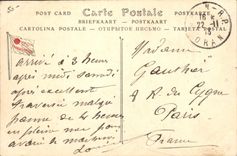 50
POST CARD Carte Postale POSTKARTE
BRIEFKART - POSTKORT
CARTOLINA POSTALE - ОТКРЫТОЕ ПИСЬМО - CARTA POSTAL
ORAN R.P.
16 H
22-11
Arrivé à 3 heures
après midi samedi
après excellent
traversée malgré
panne de 2 heures
en pleine mer pour
avarie de machine
Madame
Gauthier
4 R. du Cygne
Paris
France